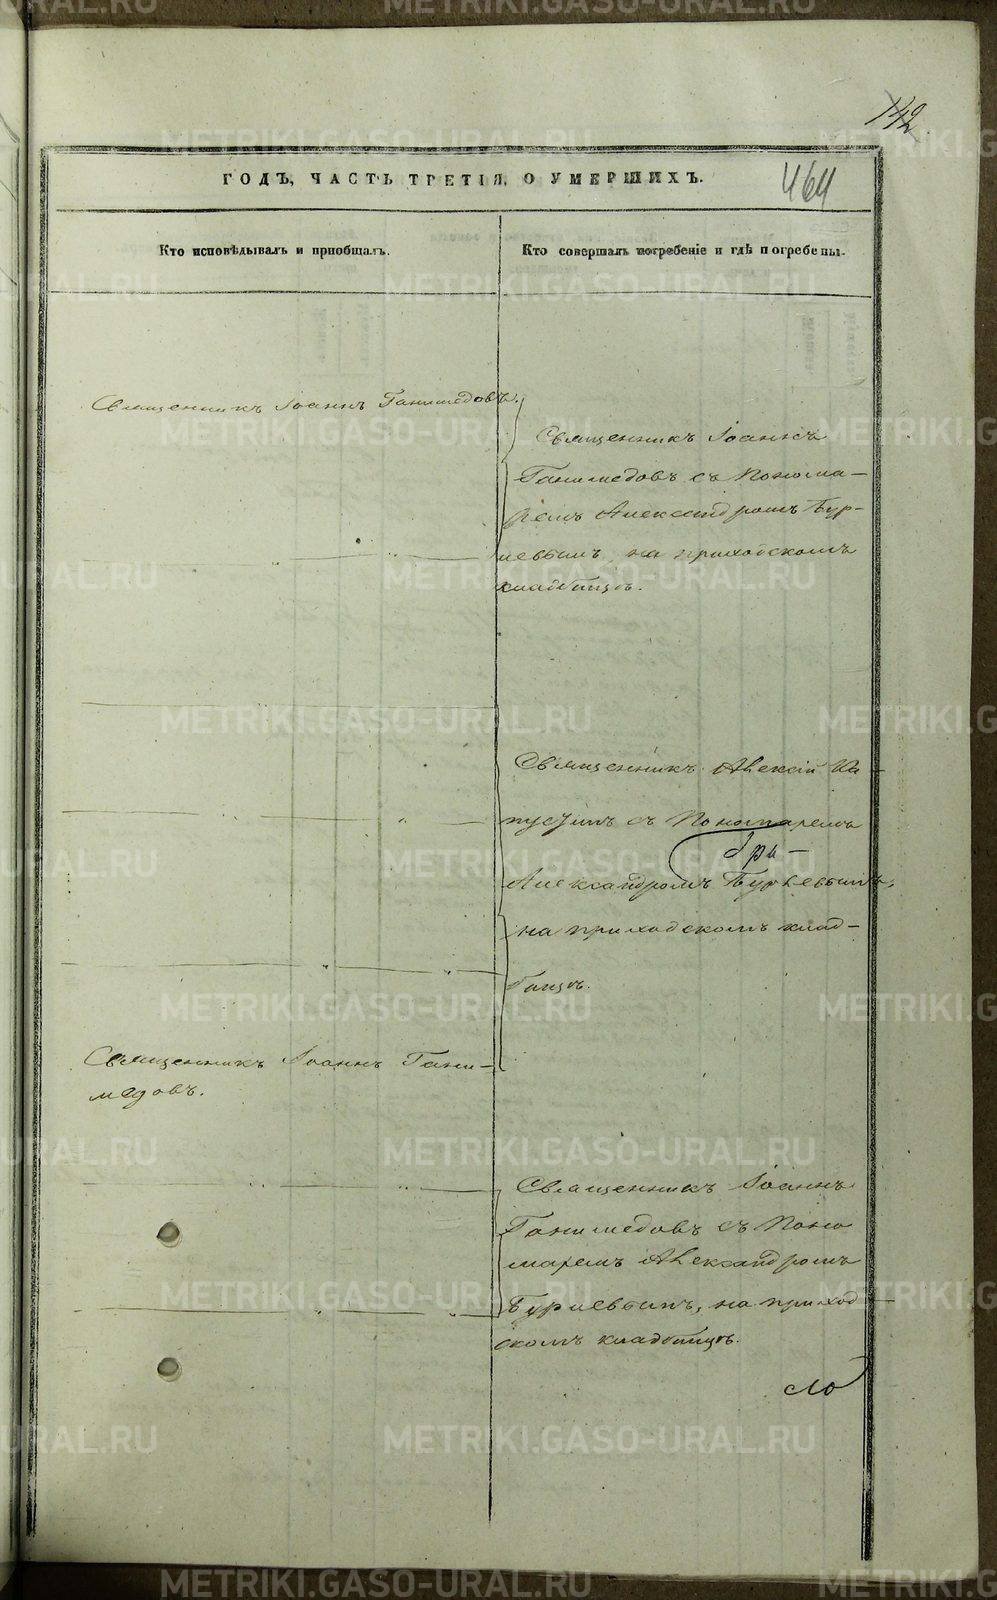 142
464
ГОДЪ, ЧАСТЬ ТРЕТІЯ, О УМЕРШИХЪ.
Кто исповѣдывалъ и пріобщалъ.
Кто совершалъ погребеніе и гдѣ погребены.
Священникъ Іоаннъ Ганимедовъ.
Священникъ Іоаннъ
Ганимедовъ съ Понома-
ремъ Александромъ Бур-
на приходскомъ
кладбищѣ.
Священникъ Алексій Ка-
пустинъ съ Пономаремъ
Александромъ
на приходскомъ клад-
бищѣ.
Священникъ Іоаннъ Гани-
медовъ.
Священникъ Іоаннъ
Ганимедовъ съ Поно
маремъ Александромъ
на приход
скомъ кладбищѣ.
METRIKI.GASO-URAL.RU